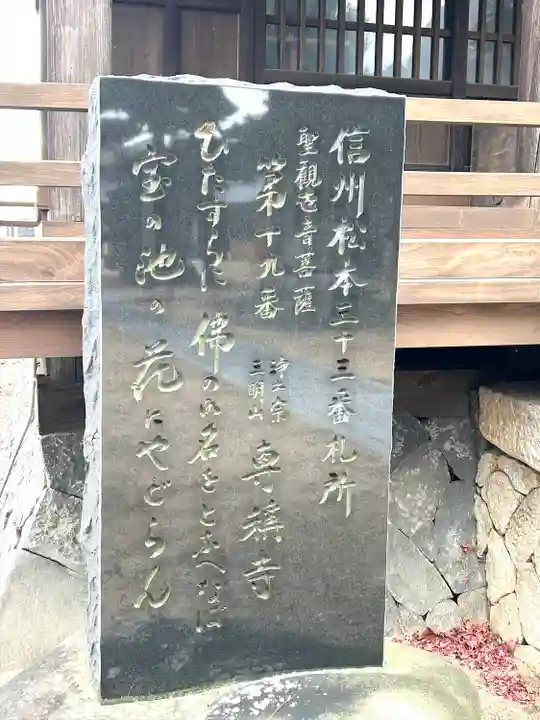 信州松本三十三番札所
聖観世音菩薩
第十九番
浄土宗
三明山
専称寺
ひたすらに佛のみ名をとなへなば
宝の池の花にやどらん